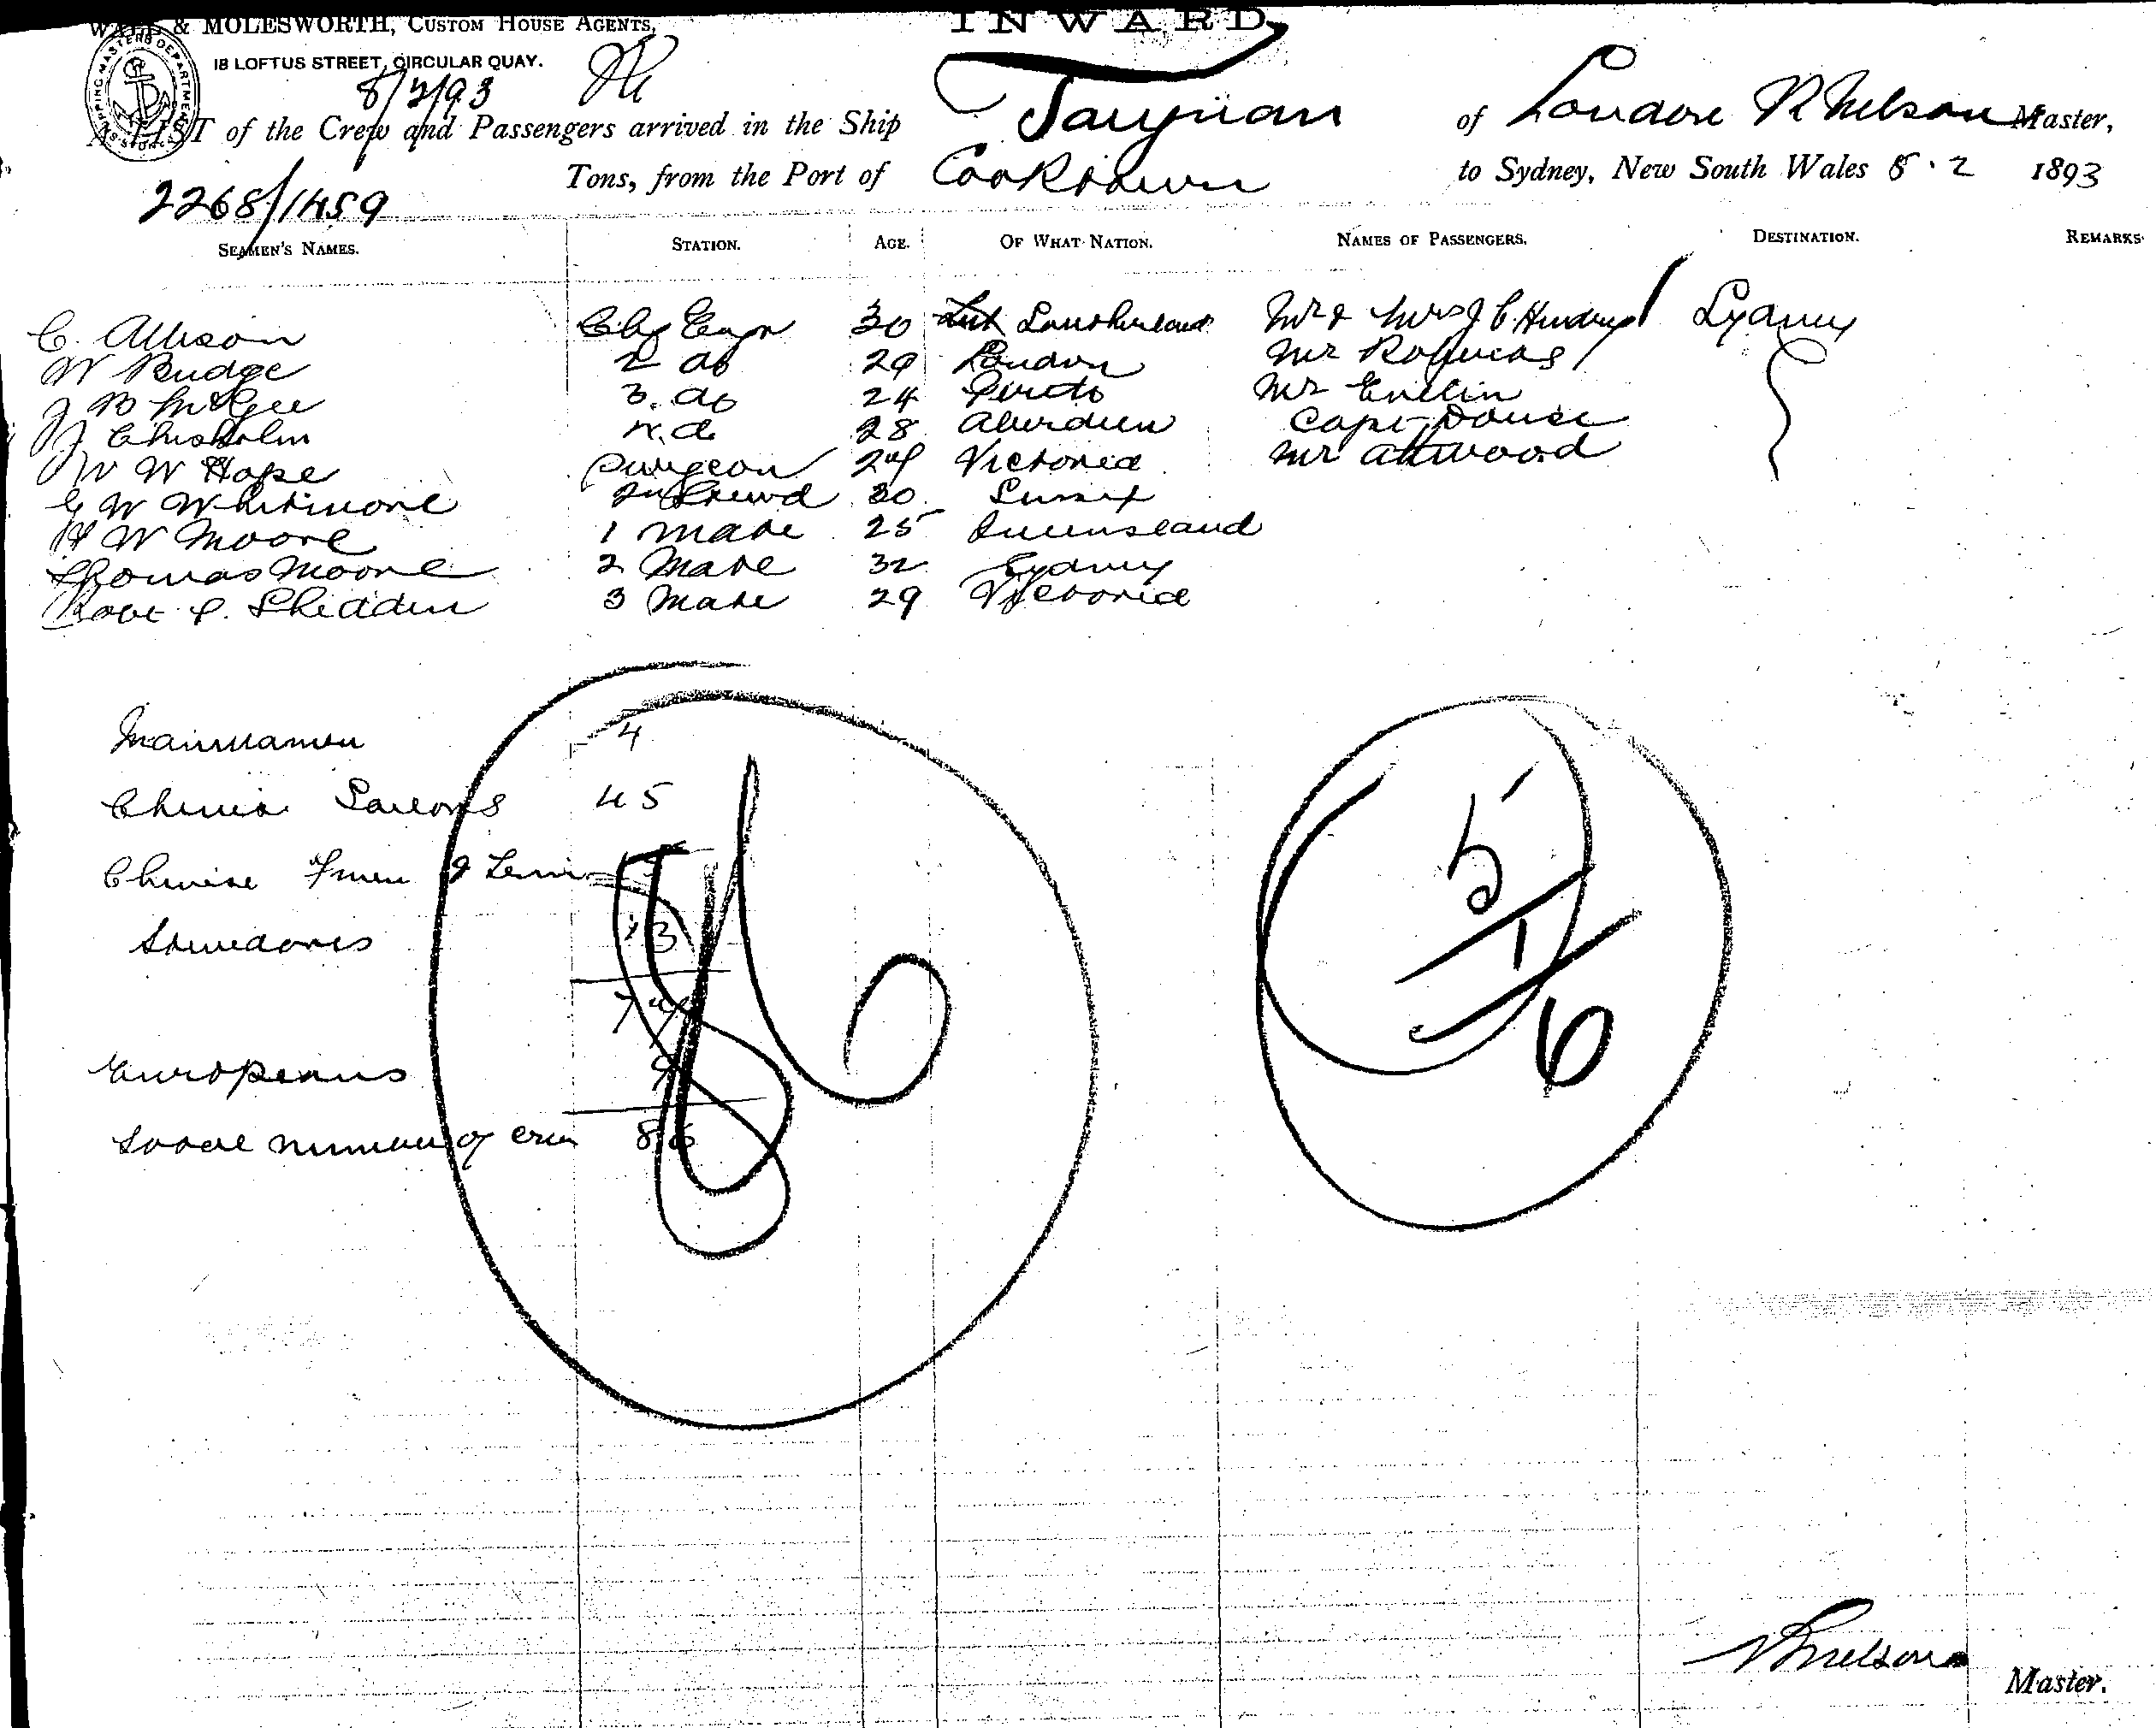 & MOLESWORTH, CUSTOM HOUSE AGENTS,
18 LOFTUS STREET, CIRCULAR QUAY.
INWARD
SHIPPING MASTERS DEPARTMENT
8/2/93
A LIST of the Crew and Passengers arrived in the Ship Taiyuan of London R Nelson Master,
2268/1459 Tons, from the Port of Cooktown to Sydney, New South Wales 8.2 1893
SEAMEN'S NAMES. STATION. AGE. OF WHAT NATION. NAMES OF PASSENGERS. DESTINATION. REMARKS.
C. Allison Engr 30 Mr & Mrs J C Sydney
W Rudge 2 do 29 London Mr
J B McGee 3. do 24 Mr Evelin
J Chisholm 4. do 28 Aberdeen Capt Douse
W W Hope Surgeon 24 Victoria Mr Attwood
G W Whitmore 30 Sussex
H W Moore 1 Mate 25 Queensland
Thomas Moore 2 Mate 32 Sydney
Robt P. Shedden 3 Mate 29 Victoria
4
Chinese Sailors 45
Chinese
Stevedores 13
77
Europeans 9
Total number of crew 86
86
5
1
6
R Nelson
Master.